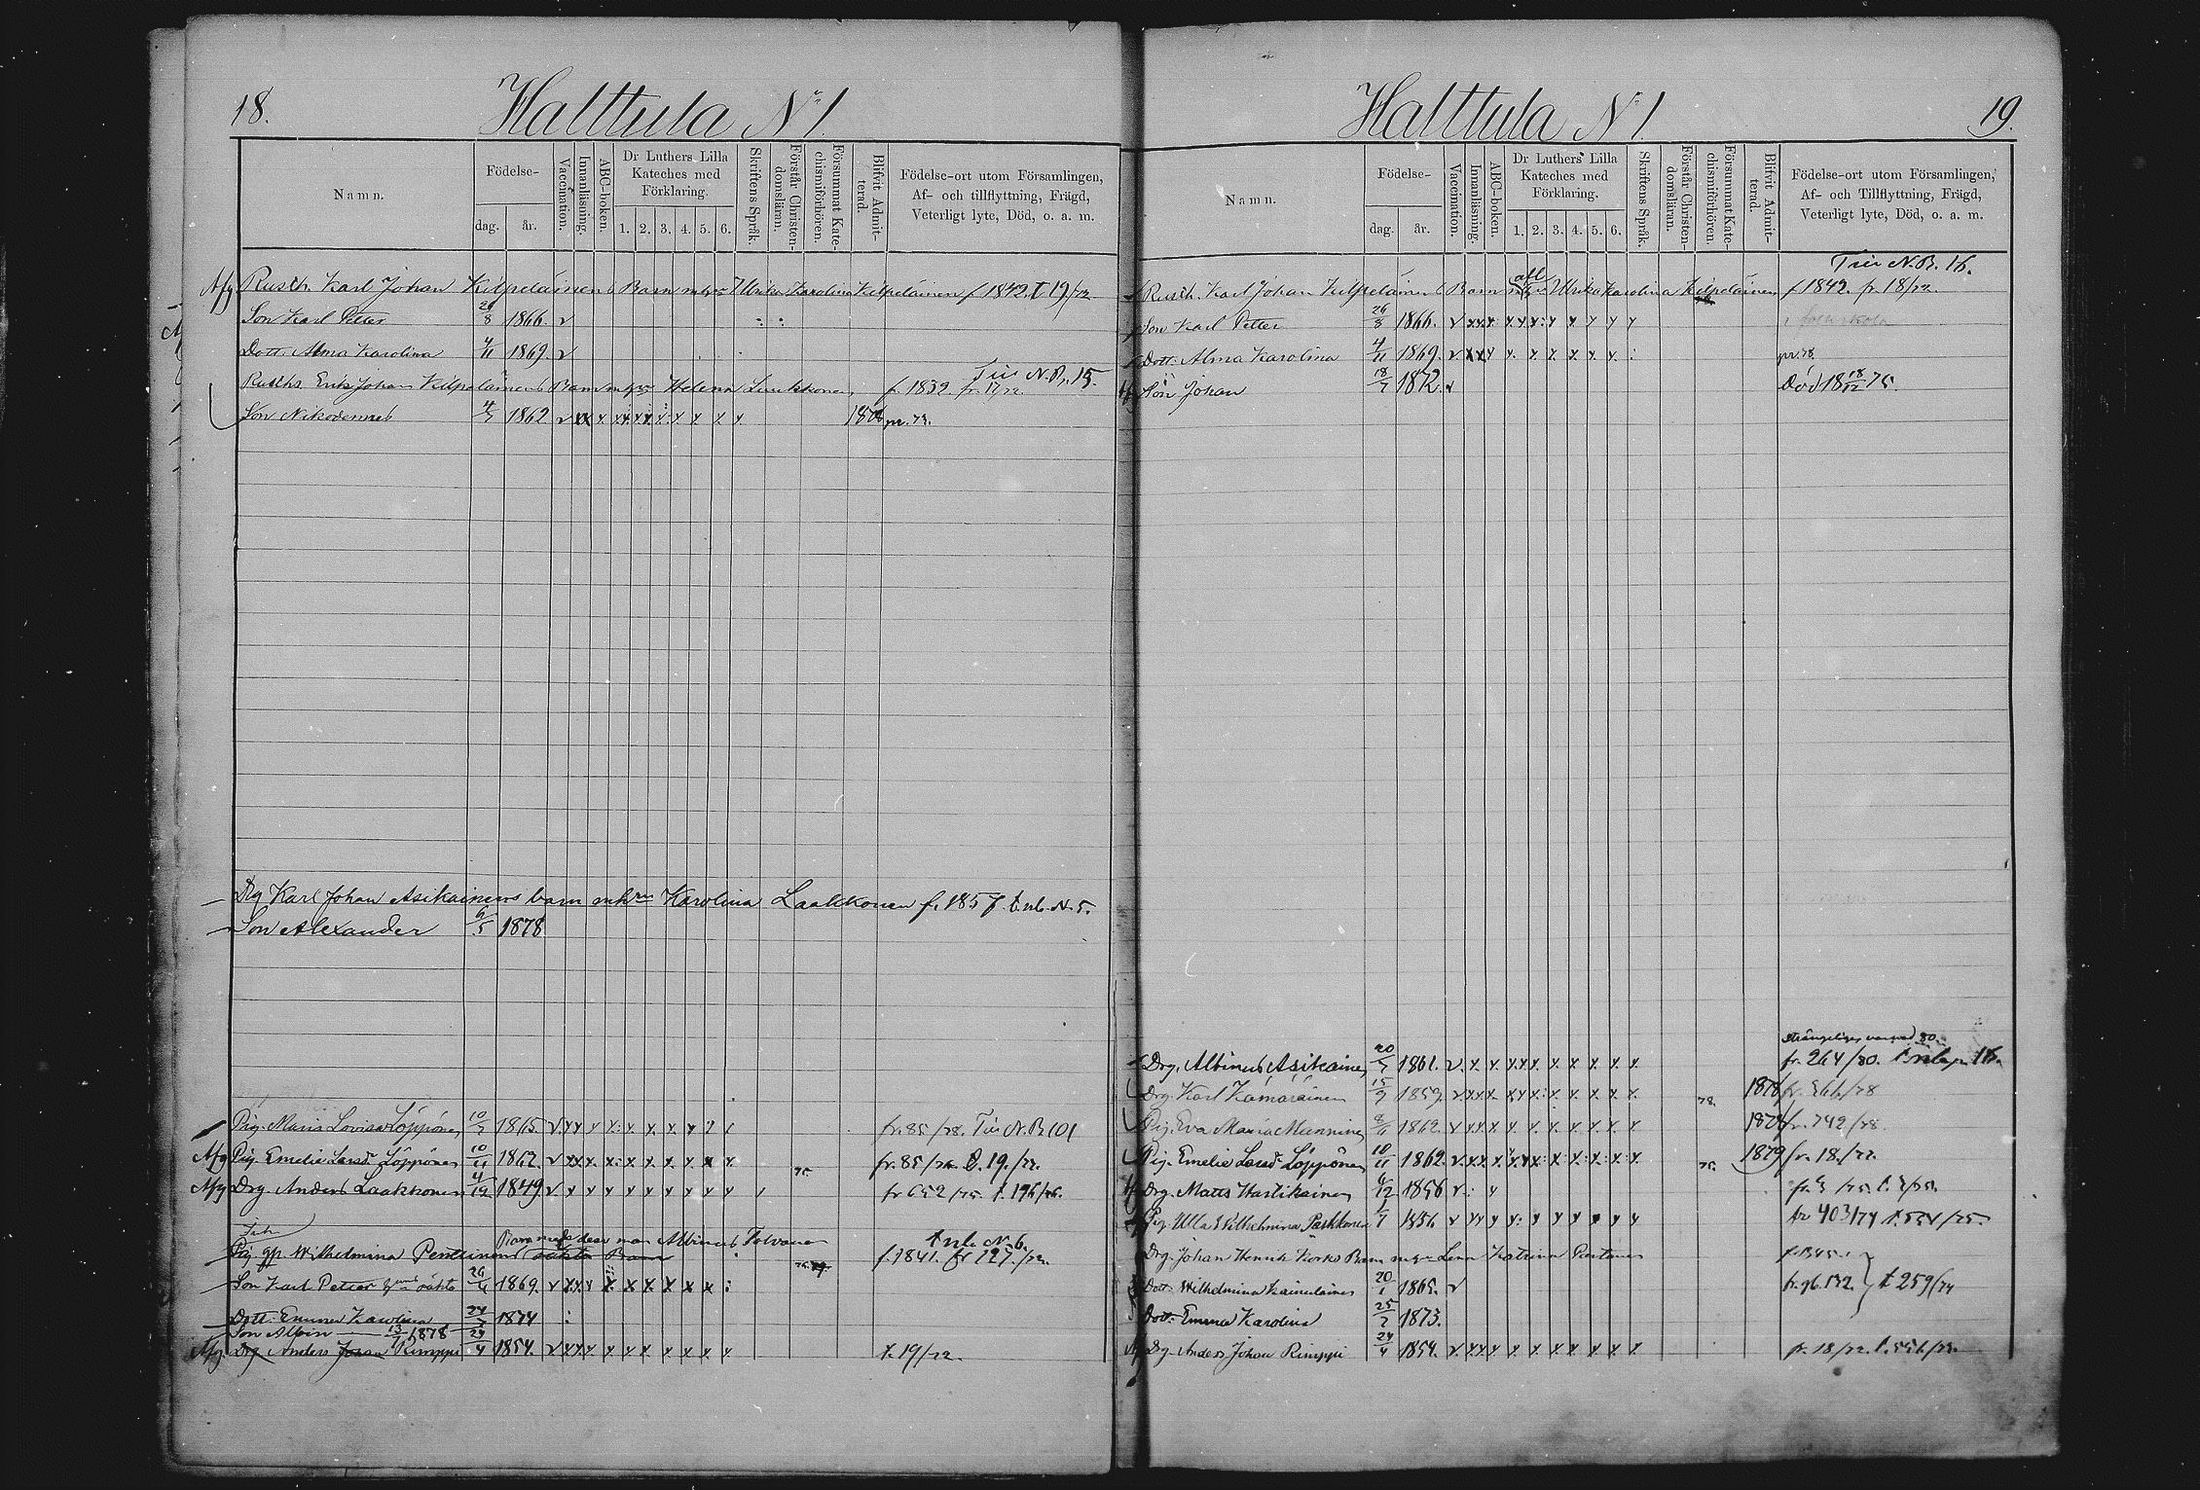 18. Halttula N:1.
Namn. Födelse- dag. år. Vaccination. Innanläsning. ABC-boken. Dr Luthers Lilla Kateches med Förklaring. 1. 2. 3. 4. 5. 6. Skriftens Språk. Förstår Christendomsläran. Försummat Katechismiförhören. Blifvit Admitterad. Födelse-ort utom Församlingen, Af- och tillflyttning, Frägd, Veterligt lyte, Död, o. a. m.
Afg Rusth. Karl Johan Kilpeläinens Barn m hu Ulrika Karolina Kilpeläinen f 1842. t 19/72
Son Karl Petter 26/8 1866. v
Dott. Alma Karolina 4/11 1869. v
Tie N.B. 15.
Rusths Erik Johan Kilpeläinens Barn m hu Helena Luukkonen f. 1839. fr. 17/72.
Son Nikodemus 4/7 1862 v xx x x x x x x x x x 1878 pr. 73.
Drg Karl Johan Asikainens barn m hu Karolina Laakkonen f. 1857. t. nb. N. 5.
Son Alexander 6/5 1878
Pig. Maria Lovisa Löppönen 10/7 1865. v x x x x x x x x fr. 85/78. Tie N.B. 101
Afg Pig. Emelie Larsdr Löppönen 10/11 1862. v x x x x x x x x x x 75. fr. 85/72. t. 19./72.
Afg Drg. Anders Laakkonen 4/12 1849. v x x x x x x x x x fr 652/75. t. 196/76.
Barn med dess man Albinus Tolvanen t nb N. 6.
Pig gp. Wilhelmina Penttinens oäkta Barn f. 1841. fr 127./72.
Son Karl Petter oäkta 26/4 1869. v x x x x x x x x x x
Dott. Emma Karolina 24/7 1874
Son Albin 13/7 1878
Afg. Drg Anders Johan Rimppi 24/4 1854. v x x x x x x x x x x t. 19/72.
Halttula N:1. 19.
Namn. Födelse- dag. år. Vaccination. Innanläsning. ABC-boken. Dr Luthers Lilla Kateches med Förklaring. 1. 2. 3. 4. 5. 6. Skriftens Språk. Förstår Christendomsläran. Försummat Katechismiförhören. Blifvit Admitterad. Födelse-ort utom Församlingen, Af- och Tillflyttning, Frägd, Veterligt lyte, Död, o. a. m.
Tie N.B. 16.
Rusth. Karl Johan Kilpeläinens Barn m hu Ulrika Karolina Kilpeläinen f 1842. fr 18/72.
Son Karl Petter 26/8 1866. v x x x x x x x x x x x folkskola
Dott. Alma Karolina 4/11 1869. v x x x x x x x x x pr. 78
Son Johan 18/7 1872. v Död 18 18/12 75.
Drg. Albinus Asikainen 20/7 1861. v x x x x x x x x x x fr. 264/80. t nb p. 16.
Drg. Karl Kämäräinen 15/9 1859. v x x x x x x x x x x 78. 1878 fr. 366/78
Pig. Eva Maria Munninen 8/11 1862. v x x x x x x x x x x 1878 fr. 742/78.
Pig. Emelie Larsd. Löppönen 10/11 1862. v x x x x x x x x x x 75. 1879 fr. 18./72.
Drg. Matts Hartikainen 6/12 1856 v
Pig. Ulla Wilhelmina Parkkonen 1/7 1856 v x x x x x x x x x x fr 403/74 t. 554/75.
Drg. Johan Henrik Korks Barn m hu Lena Katrina Pentinen f. 1845.
Dott. Wilhelmina Kainulainen 20/1 1865. v t 259/74
Dott. Emma Karolina 25/7 1873.
Drg. Anders Johan Rimppi 24/4 1854. v x x x x x x x x x x fr. 18/72. t. 556/73.